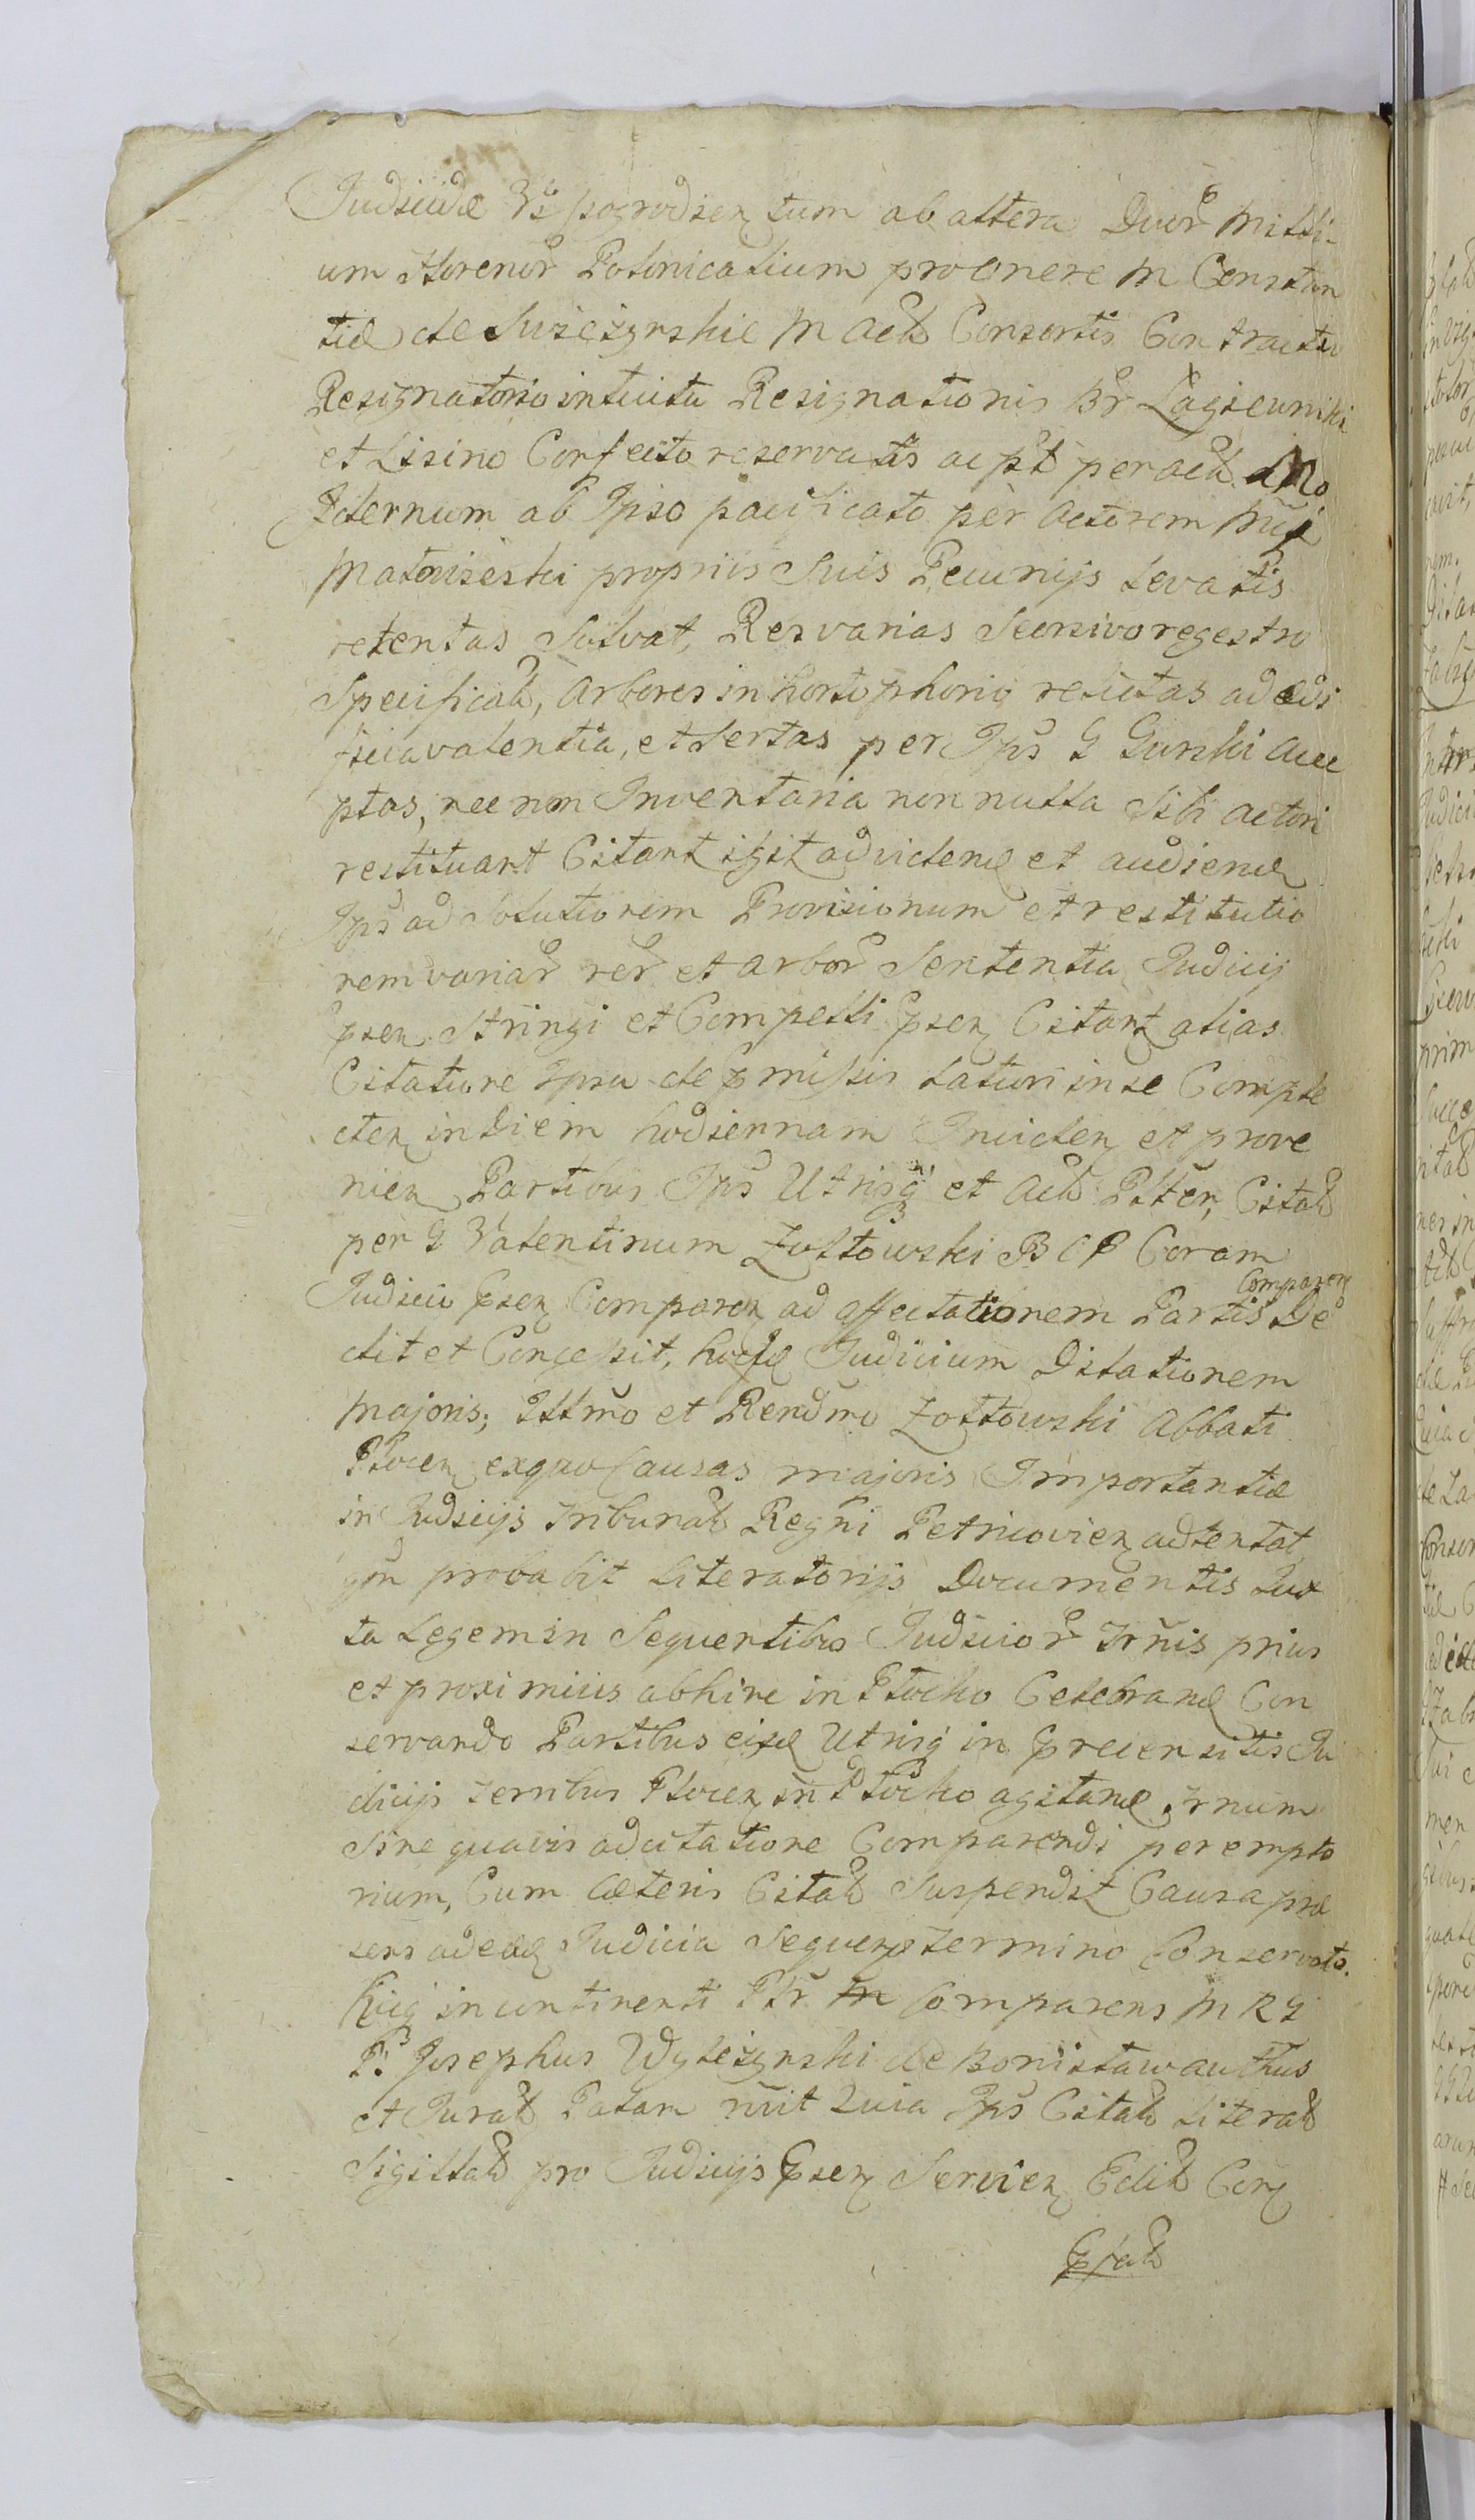 Judiciale Vę pogrodzien tum ab altera Duor Milli-
um florenor Polonicalium pro onere M Constan
tiæ de Swiezynskie M Actis Consortis Contractu
Resignatorio intuitu Resignationis Br Łagiewniki
et Lisino Confecto reservatis ac pst per act
Idernum ab Ipso pacificato per Actorem
Matowieski propriis Suis Pecunijs levatis
retentas Solvat, Res varias Seorsivo regestro
Specificat, Arbores in horto relictas ad ædi
ficia valentia, et Sertas per Ips G Gurski acce
ptas, nec non Inventaria non nulla Sibi Actori
restituant Citant igit ad vidend et audiend
Ips ad Solutionem Provisionum et restitutio
nem variar rer et arbor Sententia Judicij
psen Stringi et Compelli psen Citant alias
Citatione Ipsa de pmissis latiori in se Comple
cten in Diem hodiernam Inciden et prove
nien Partibus Ips Utrisq et Act Ptten, Citat
per G Valentinum Zołtowski B C P Coram
Judicio psen Comparen ad affectationem Partis Comparen De
dit et Concessit, Judicium Dilationem
Majoris; Illmo et Rendmo Zołtowski Abbati
Plocen exquo Causas majoris Importantiæ
in Judicijs Tribunal Regni Petricovien adtentat
qm probabit Literatorijs Documentis Jux
ta Legem in Sequentibus Judicior Trnis prius
et proximius abhinc in Płocko Celebrand Con
servando Partibus eisd Utrisq in precensitis Ju
dicijs terribus Plocen in Płocko agitand Trnum
Sine quavis adcitatione Comparendi perempto
rium, Cum Cæteris Citat Suspendit Causa præ
sens ad ead Judicia Sequen termino Conservato.
Huicq incontinenti Ptr Comparens M R G
P: Josephus Wyleżynski de Bonisław authus
et Jurat Palam rūit Quia Ips Citat Literat
Sigillat pro Judicijs Psen Servien Edit Con
Psat